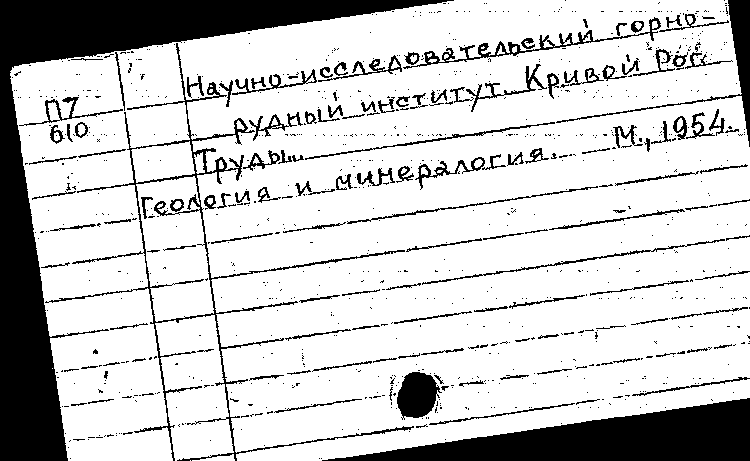 П7
610
Научно-исследовательский горно-
рудный институт. Кривой Рог.
Труды...
Геология и минералогия. М., 1954.